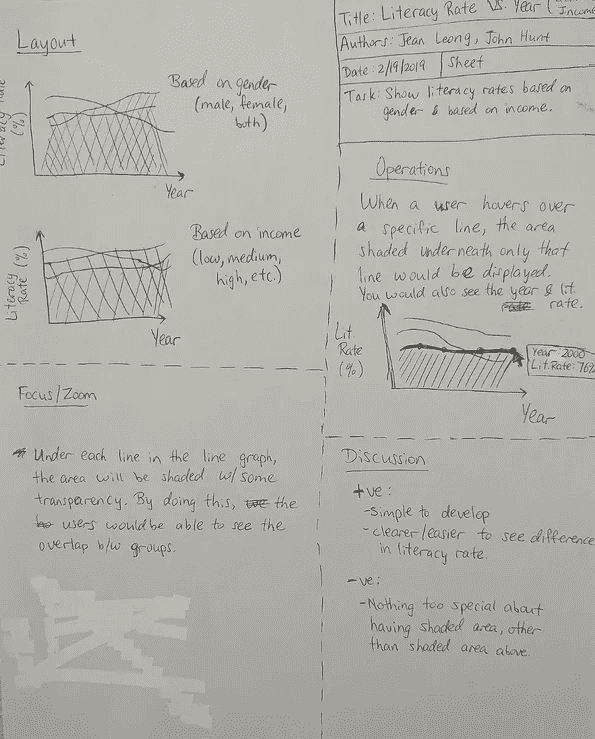 Layout
Literacy Rate
(%)
Based on gender
(male, female,
both)
Year
Literacy
Rate (%)
Based on income
(low, medium,
high, etc.)
Year
Focus/Zoom
* Under each line in the line graph,
the area will be shaded w/some
transparency. By doing this, the
users would be able to see the
overlap b/w groups.
Title: Literacy Rate VS. Year (
Income
Authors: Jean Leong, John Hunt
Date: 2/19/2019 | Sheet
Task: Show literacy rates based on
gender & based on income.
Operations
When a user hovers over
a specific line, the area
shaded underneath only that
line would be displayed.
You would also see the year & lit.
rate.
Lit.
Rate
(%)
Year 2000
Lit.Rate: 76%
Year
Discussion
+ve:
-Simple to develop
-clearer/easier to see difference
in literacy rate.
-ve:
-Nothing too special about
having shaded area, other
than shaded area above.